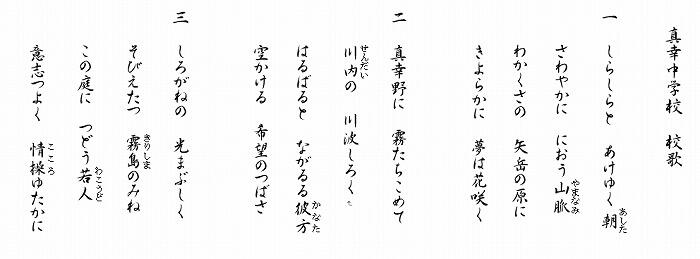 真幸中学校　校歌
一　しらしらと　あけゆく　朝(あした)
さわやかに　におう　山脈(やまなみ)
わかくさの　矢岳の原に
きよらかに　夢は花咲く
二　真幸野に　霧たちこめて
川内(せんだい)の　川波しろく
はるばると　ながるる　彼方(かなた)
空かける　希望のつばさ
三　しろがねの　光まぶしく
そびえたつ　霧島(きりしま)のみね
この庭に　つどう　若人(わこうど)
意志つよく　情操(こころ)ゆたかに